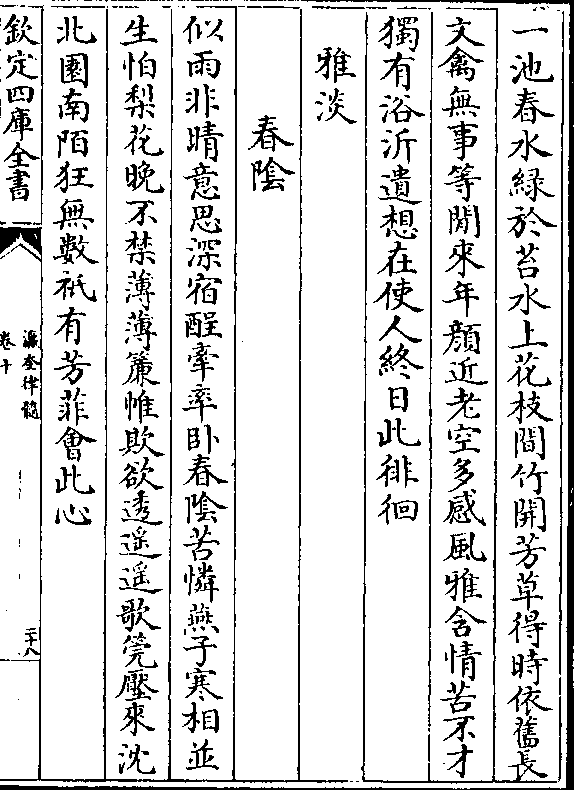 一池春水緑於苔水上花枝間竹開芳草得時依舊長
文禽無事等閒來年顔近老空多感風雅含情苦不才
獨有浴沂遺想在使人終日此徘徊
雅淡
春隂
似雨非晴意思深宿酲牽率卧春隂苦憐燕子寒相並
生怕梨花晚不禁薄薄簾帷欺欲透遥遥歌筦壓來沈
北園南陌狂無數祇有芳菲會此心
欽定四庫全書
瀛奎律髓
卷十
二十八